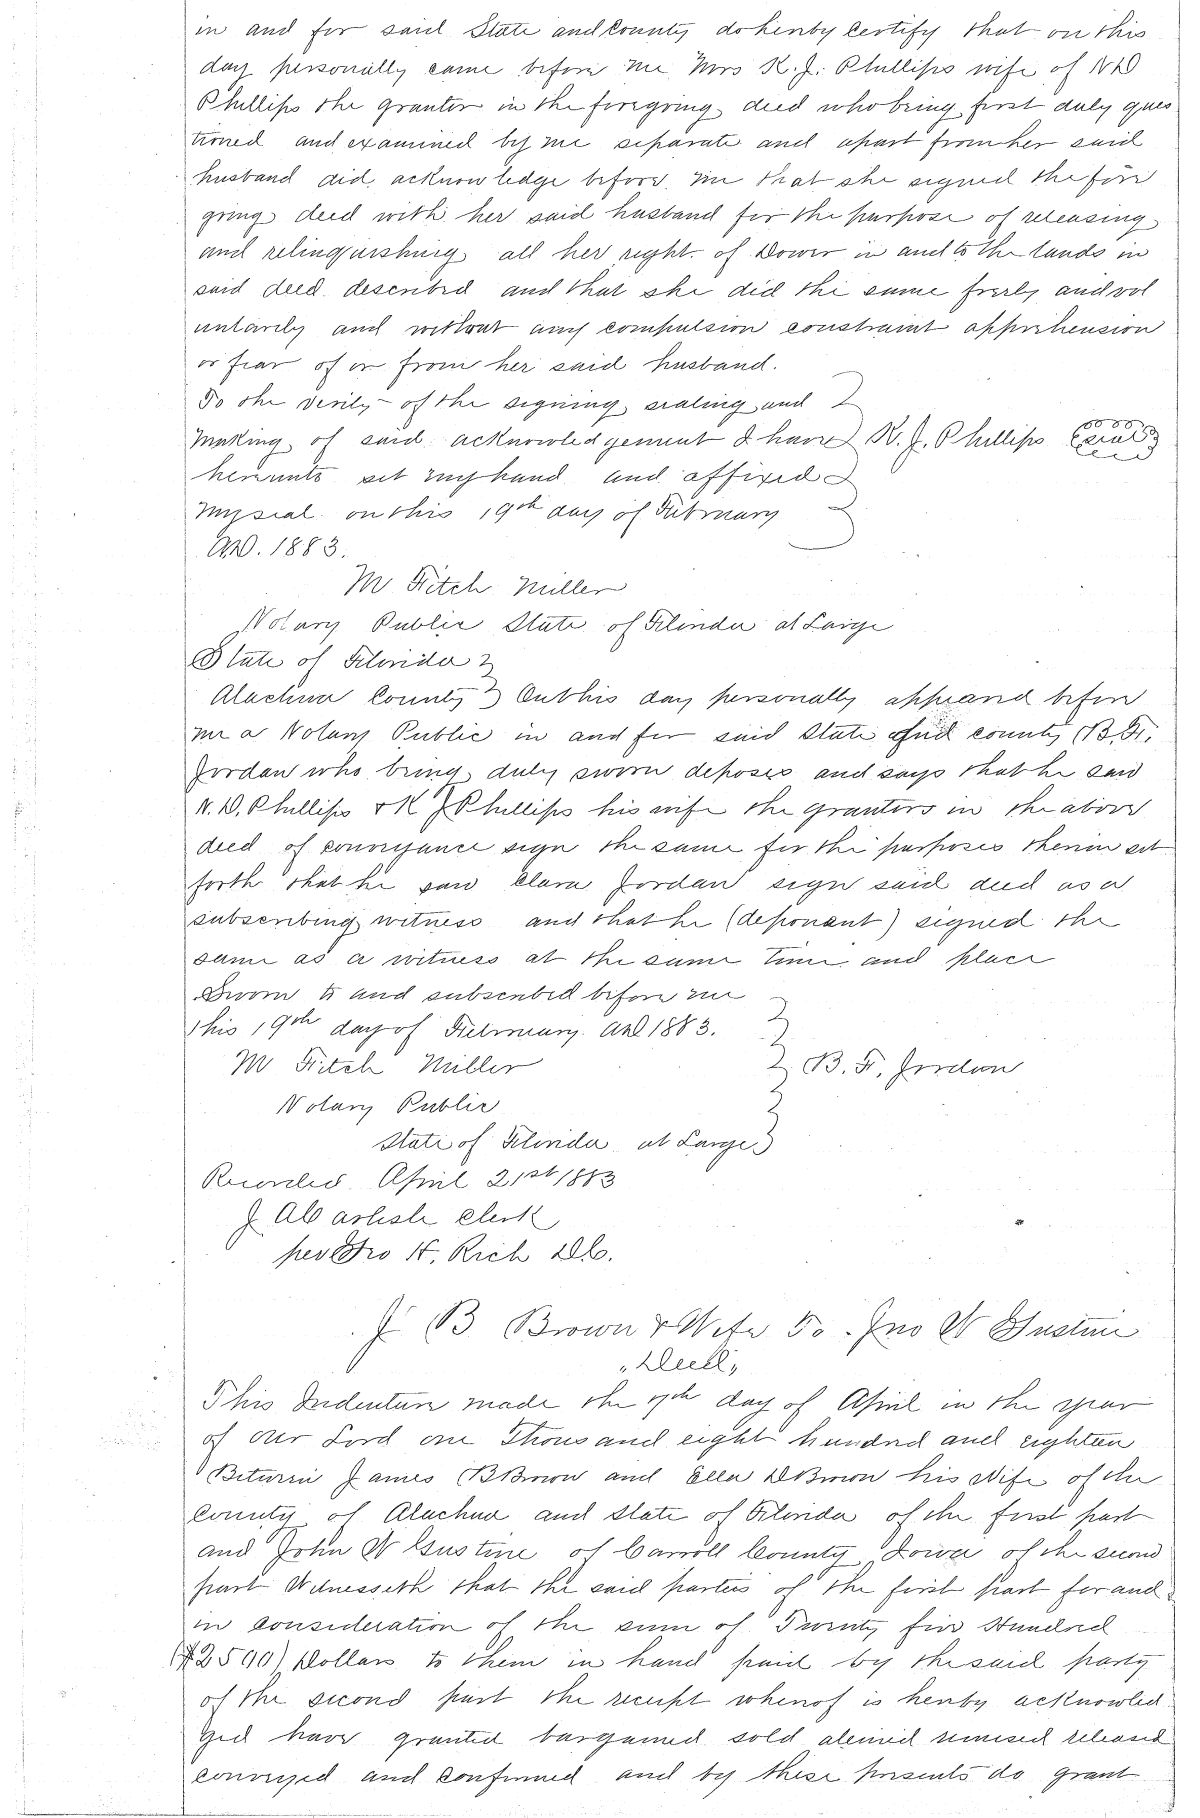 in and for said State and County do hereby Certify that on this
day personally came before me Mrs K. J. Phillips wife of N D
Phillips the grantor in the foregoing deed who being first duly ques
tioned and examined by me separate and apart from her said
husband did acknowledge before me that she signed the fore
going deed with her said husband for the purpose of releasing
and relinquishing all her right of Dower in and to the lands in
said deed described and that she did the same freely and vol
untarily and without any compulsion constraint apprehension
or fear of or from her said husband.
To the verity of the signing sealing and
Making of said acknowledgement I have K. J. Phillips (seal)
hereunto set my hand and affixed
My seal on this 19th day of February
AD. 1883.
M Fitch Miller
Notary Public State of Florida at Large
State of Florida
Alachua County On this day personally appeared before
me a Notary Public in and for said State and county B. F.
Jordan who being duly sworn deposes and says that he saw
N. D. Phillips & K J Phillips his wife the grantors in the above
deed of conveyance sign the same for the purposes therein set
forth that he saw Clara Jordan sign said deed as a
subscribing witness and that he (deponant) signed the
same as a witness at the same time and place
Sworn to and subscribed before me
this 19th day of February AD 1883.
M Fitch Miller B. F. Jordan
Notary Public
State of Florida at Large
Recorded April 21st 1883
J A Carlisle Clerk
per Geo H. Rich D C.
J B Brown & Wife To Jno W Gustine
"Deed"
This Indenture made the 7th day of April in the year
of our Lord one Thousand eight hundred and eighteen
Between James B Brown and Ella D Brown his Wife of the
County of Alachua and State of Florida of the first part
and John W Gustine of Carroll County Iowa of the second
part Witnesseth that the said parties of the first part for and
in consideration of the sum of Twenty five Hundred
($2500) Dollars to them in hand paid by the said party
of the second part the receipt whereof is hereby acknowled
ged have granted bargained sold aliened remised released
conveyed and confirmed and by these presents do grant